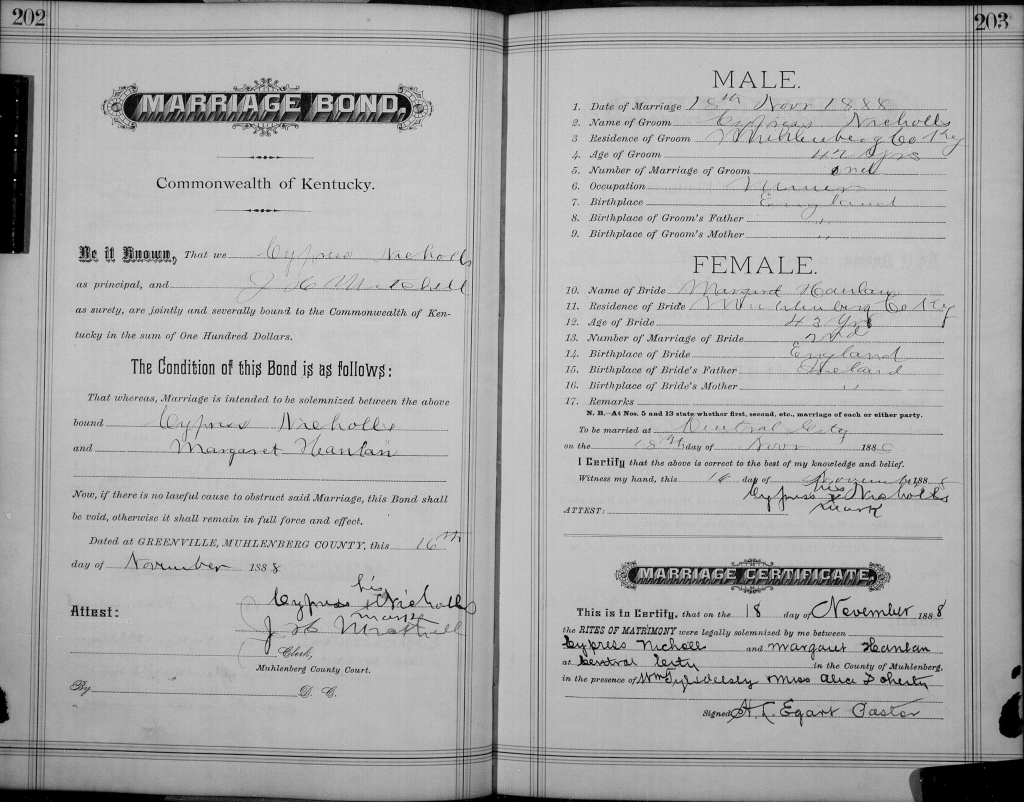 202
MARRIAGE BOND.
Commonwealth of Kentucky.
Be it Known, That we Cypress Nicholls
as principal, and J H Mitchell
as surety, are jointly and severally bound to the Commonwealth of Ken-
tucky in the sum of One Hundred Dollars.
The Condition of this Bond is as follows:
That whereas, Marriage is intended to be solemnized between the above
bound Cypress Nicholls
and Margaret Hanlan
Now, if there is no lawful cause to obstruct said Marriage, this Bond shall
be void, otherwise it shall remain in full force and effect.
Dated at GREENVILLE, MUHLENBERG COUNTY, this 16th
day of November 1888
his
Attest: Cypress x Nicholls
mark
J H Mitchell
Clerk,
Muhlenberg County Court.
By D. C.
203
MALE.
1. Date of Marriage 18th Novr 1888
2. Name of Groom Cypress Nicholls
3. Residence of Groom Muhlenberg Co Ky
4. Age of Groom 47 yrs
5. Number of Marriage of Groom 2nd
6. Occupation Miner
7. Birthplace England
8. Birthplace of Groom's Father "
9. Birthplace of Groom's Mother "
FEMALE.
10. Name of Bride Margaret Hanlan
11. Residence of Bride Muhlenberg Co Ky
12. Age of Bride 43 Yrs
13. Number of Marriage of Bride 2nd
14. Birthplace of Bride England
15. Birthplace of Bride's Father Ireland
16. Birthplace of Bride's Mother "
17. Remarks
N. B.—At Nos. 5 and 13 state whether first, second, etc., marriage of each or either party.
To be married at Central City
on the 18th day of Novr 188
I Certify that the above is correct to the best of my knowledge and belief.
Witness my hand, this 16 day of November 1888
his
Cypress x Nicholls
ATTEST: mark
MARRIAGE CERTIFICATE.
This is to Certify, that on the 18 day of November 1888
the RITES OF MATRIMONY were legally solemnized by me between
Cypress Nicholl and Margaret Hanlan
at Central City in the County of Muhlenberg,
in the presence of Wm Miss Alice Doherty
Signed, H. C. Egart Pastor